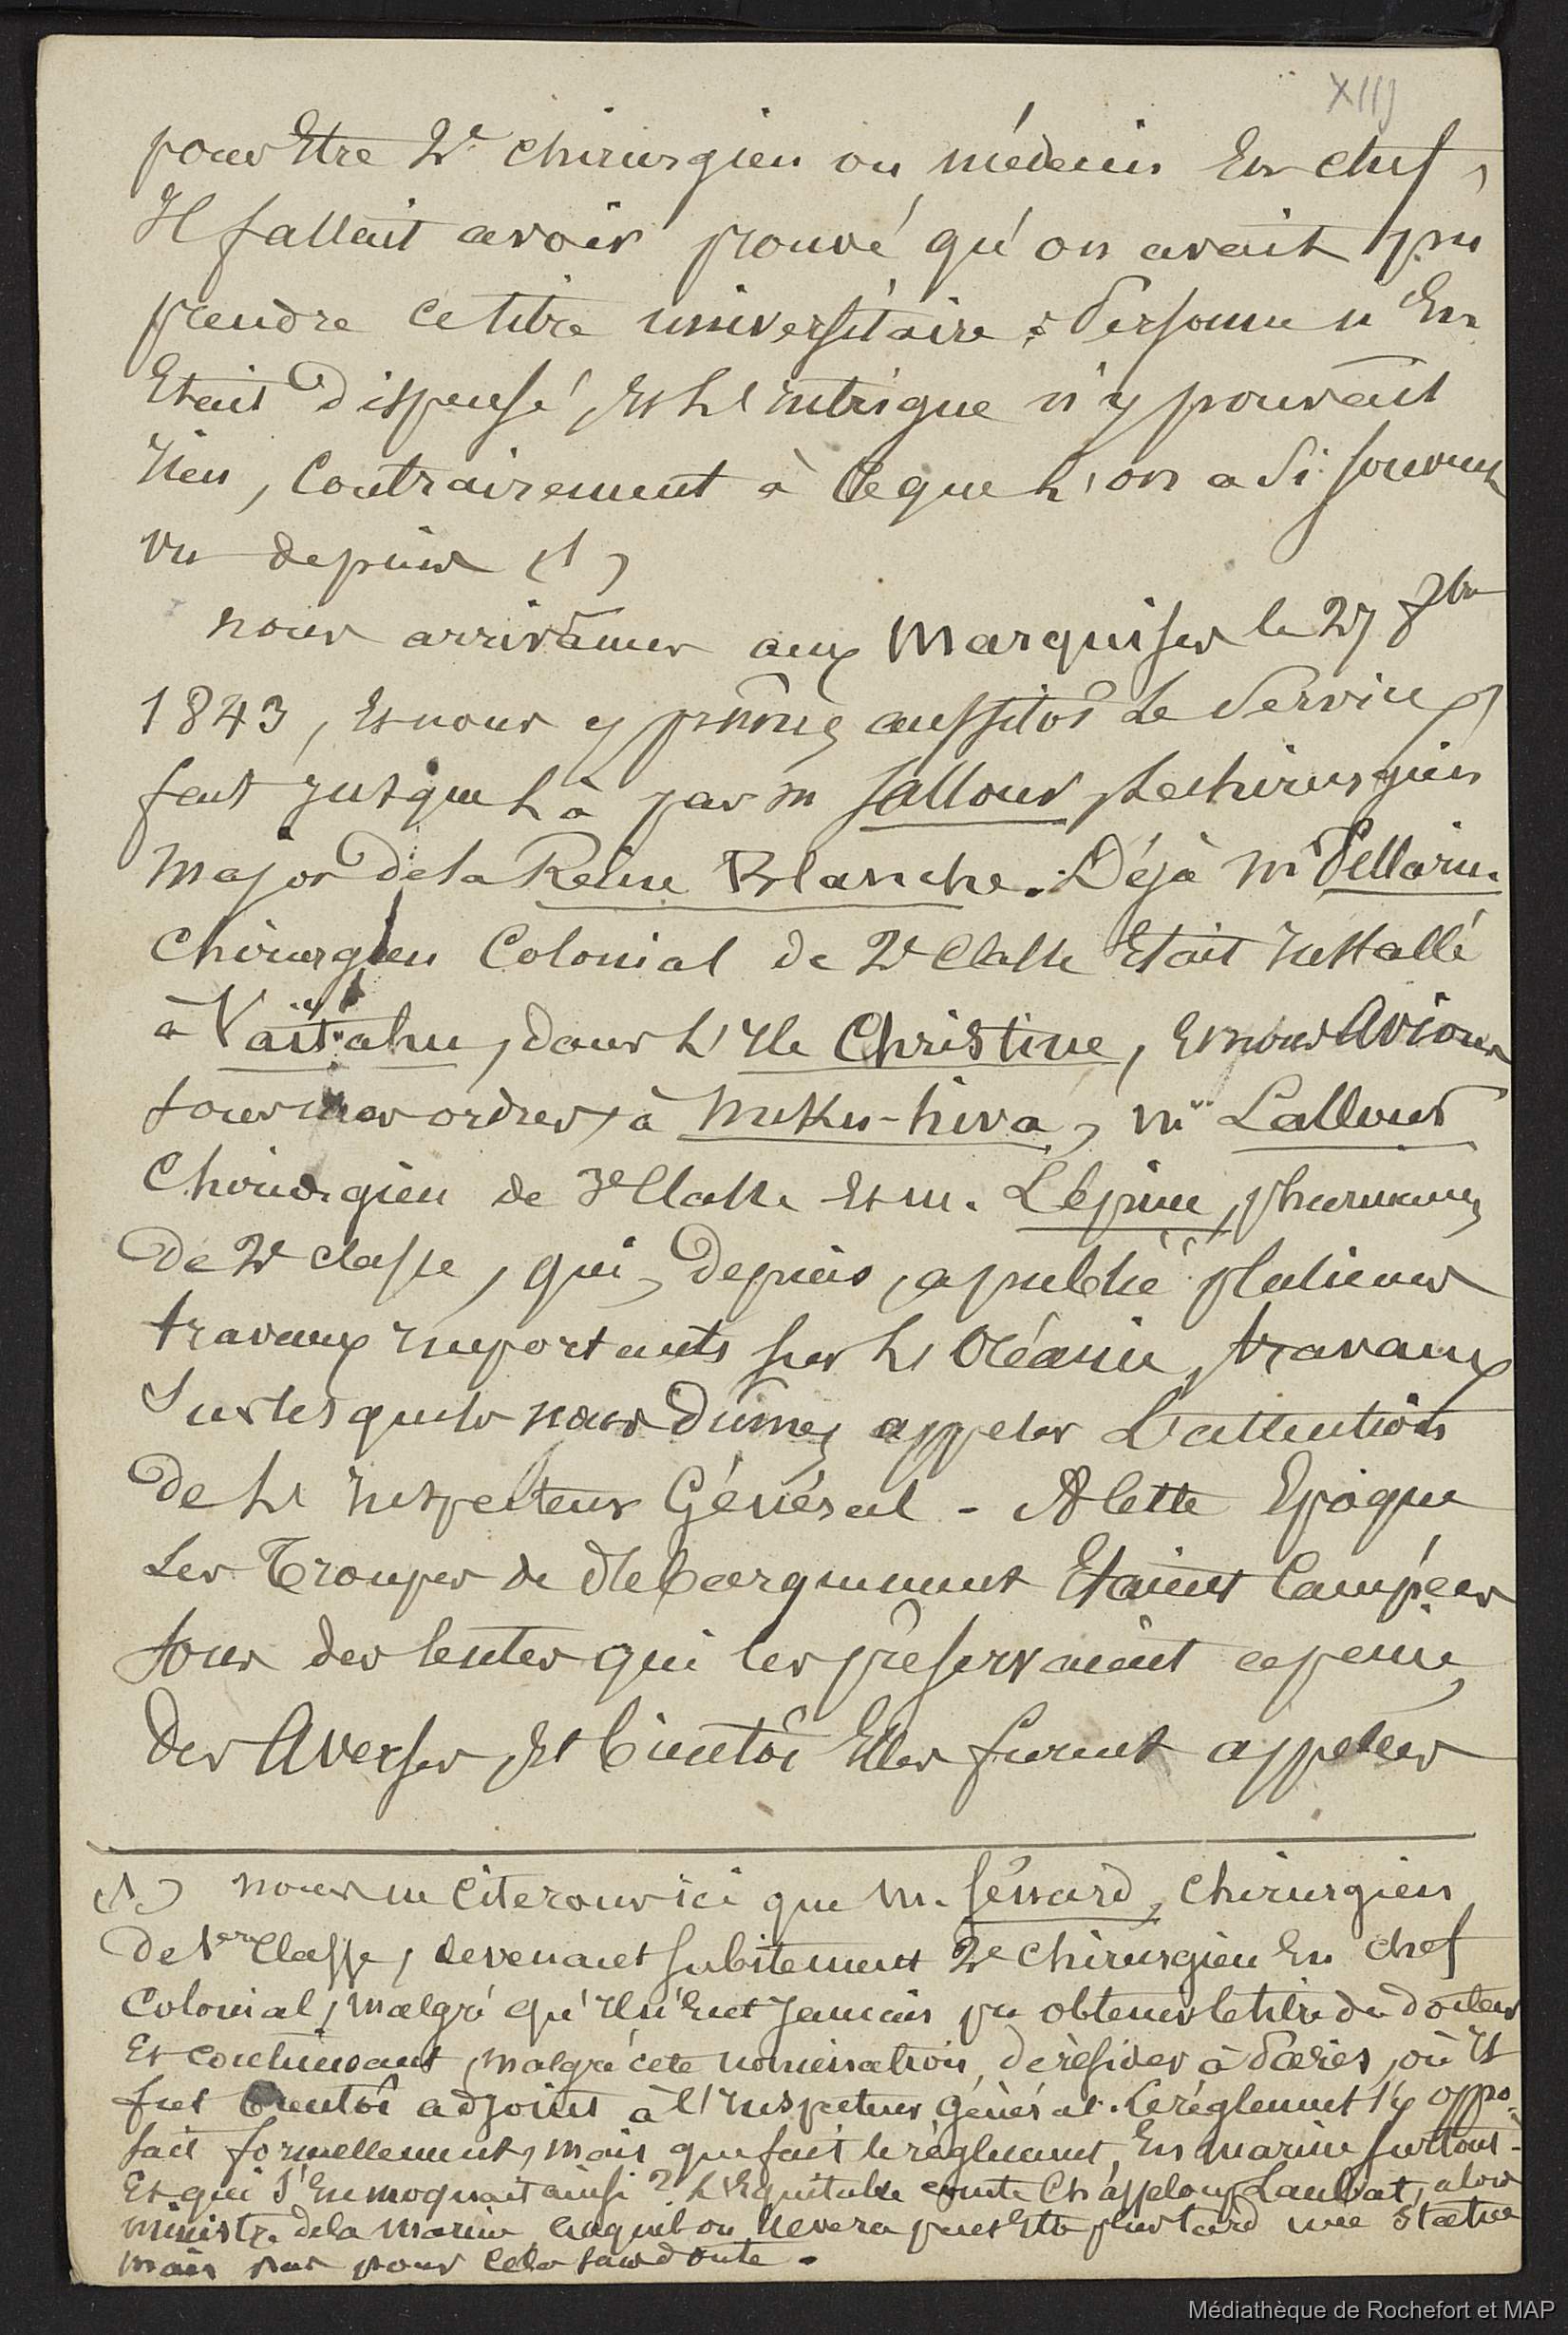 XIIJ
pour Etre 2e chirurgien ou médecin En chef,
Il fallait avoir prouvé qu'on avait pu
prendre ce titre universitaire ; Personne n'En
Etait dispensé, Et L'intrigue n'y pouvait
rien, Contrairement à Ce que L'on a Si souvent
vu depuis (1)
nous arrivâmes aux Marquises le 27 8bre
1843, Et nous y prîmes aussitôt Le Service,
fait jusque Là par m Jallour, Le chirurgien
major de la Reine Blanche. Déjà mr Pellarin
chirurgien Colonial de 2e Classe Etait Installé
à Vaïtahu, dans L'Ile Christine, Et nous Avions
sous nos ordres, à Nuku-hiva, mr Lallour
Chirurgien de 3e Classe Et m. Lépine, pharmacien
De 2e classe, qui, Depuis, a publié plusieurs
travaux importants sur L'Océanie, travaux
Sur lesquels nous Dûmes appeler L'attention
De L'Inspecteur Général - A Cette Epoque
Les Troupes de débarquement Etaient Campées
sous des tentes qui les préservaient à peine
Des Averses, Et bientôt Elles furent appelées
(1) nous ne Citerons ici que M. Sénard, chirurgien
De 1ère Classe, devenant subitement 2e chirurgien En chef
Colonial, malgré qu'Il n'Eut Jamais pu obtenir le titre de docteur
Et continuant, malgré cete nomination, de résider à Paris, où Il
fut bientôt adjoint à l'Inspecteur général. Le réglement s'y oppo-
sait formellement, mais que fait le réglement, En marine surtout -
Et qui S'En moquait ainsi ? L'Equitable comte Chasseloup Laubat, alors
ministre de la Marine auquel on Élevera peut Etre plus tard une Statue
mais pas pour Cela sans doute.
Médiathèque de Rochefort et MAP